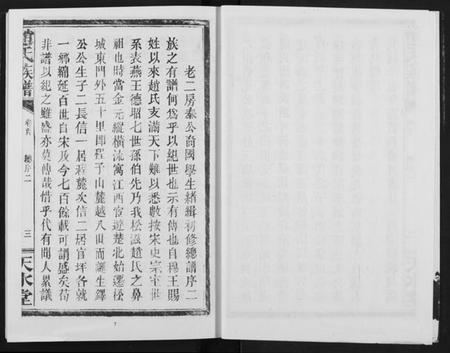 老二房泰公裔國學生緒緝初修總譜序二
族之有譜何爲乎以紀世也示有傳也自穆王賜
姓以來趙氏支滿天下難以悉數按宋史宗室世
系表燕王德昭七世孫伯先乃我松滋趙氏之鼻
祖也時當金元縱橫流寓江西宦遊楚北始遷松
城東門外五十里即程子山麓越八世而誕生鐸
公公生子二長信一居程麓次信二居官坪各就
一鄉綿延百世自宋及今七百餘載可謂盛矣苟
非譜以紀之雖盛亦莫傳哉惜乎代有聞人累議
趙氏族譜
卷首
總序二
三
天水堂
7